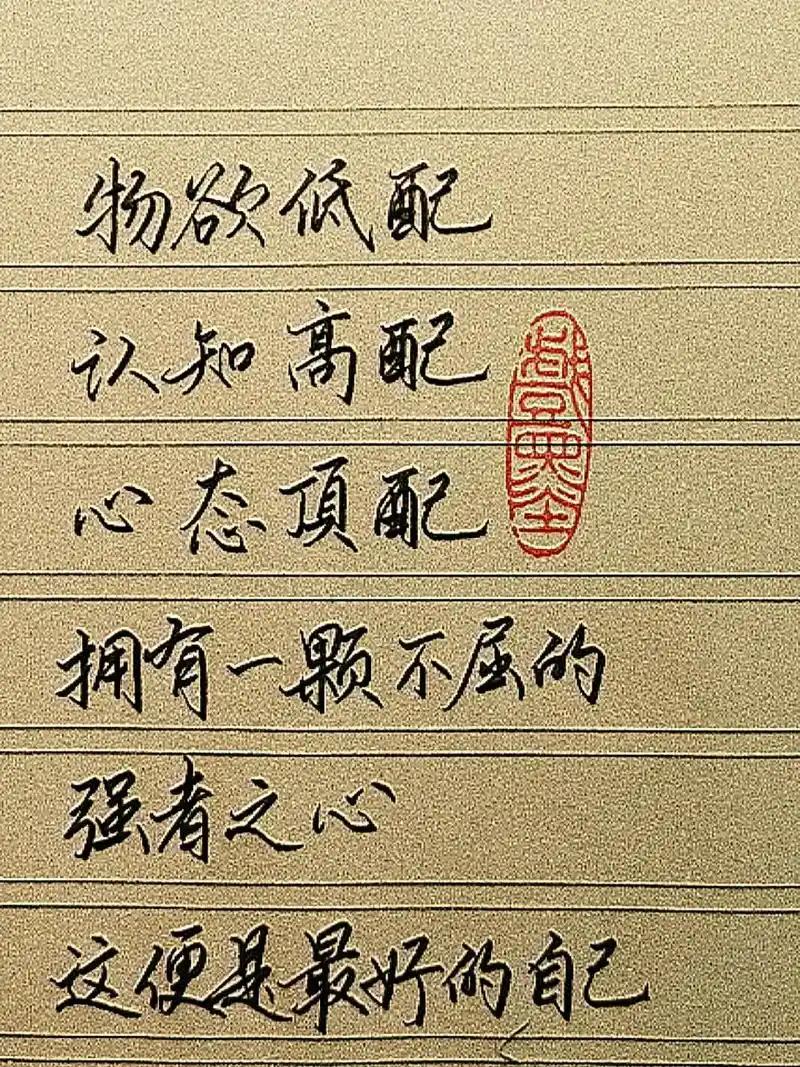 物欲低配
认知高配
心态頂配
拥有一颗不屈的
强者之心
这便是最好的自己